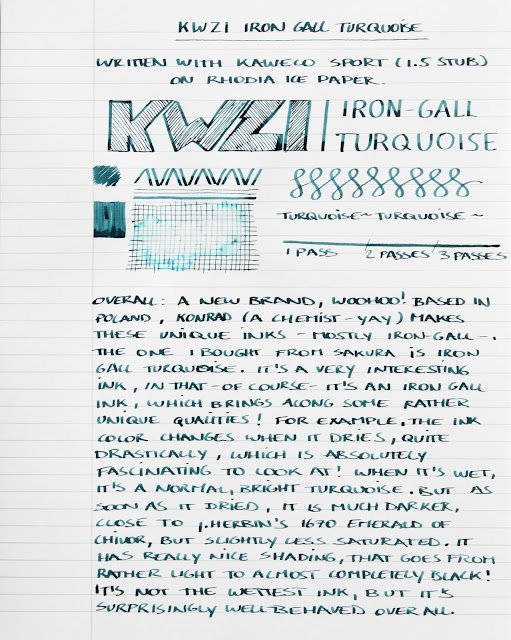 KWZI IRON GALL TURQUOISE
WRITTEN WITH KAWECO SPORT (1.5 STUB)
ON RHODIA ICE PAPER.
KWZI | IRON-GALL
TURQUOISE
TURQUOISE~ TURQUOISE ~
1 PASS / 2 PASSES / 3 PASSES
OVERALL: A NEW BRAND, WOOHOO! BASED IN
POLAND, KONRAD (A CHEMIST - YAY) MAKES
THESE UNIQUE INKS - MOSTLY IRON-GALL -.
THE ONE I BOUGHT FROM SAKURA IS IRON
GALL TURQUOISE. IT'S A VERY INTERESTING
INK, IN THAT - OF COURSE - IT'S AN IRON GALL
INK, WHICH BRINGS ALONG SOME RATHER
UNIQUE QUALITIES! FOR EXAMPLE, THE INK
COLOR CHANGES WHEN IT DRIES, QUITE
DRASTICALLY, WHICH IS ABSOLUTELY
FASCINATING TO LOOK AT! WHEN IT'S WET,
IT'S A NORMAL, BRIGHT TURQUOISE. BUT AS
SOON AS IT DRIED, IT IS MUCH DARKER,
CLOSE TO J.HERBIN'S 1670 EMERALD OF
CHIVOR, BUT SLIGHTLY LESS SATURATED. IT
HAS REALLY NICE SHADING, THAT GOES FROM
RATHER LIGHT TO ALMOST COMPLETELY BLACK!
IT'S NOT THE WETTEST INK, BUT IT'S
SURPRISINGLY WELL-BEHAVED OVERALL.